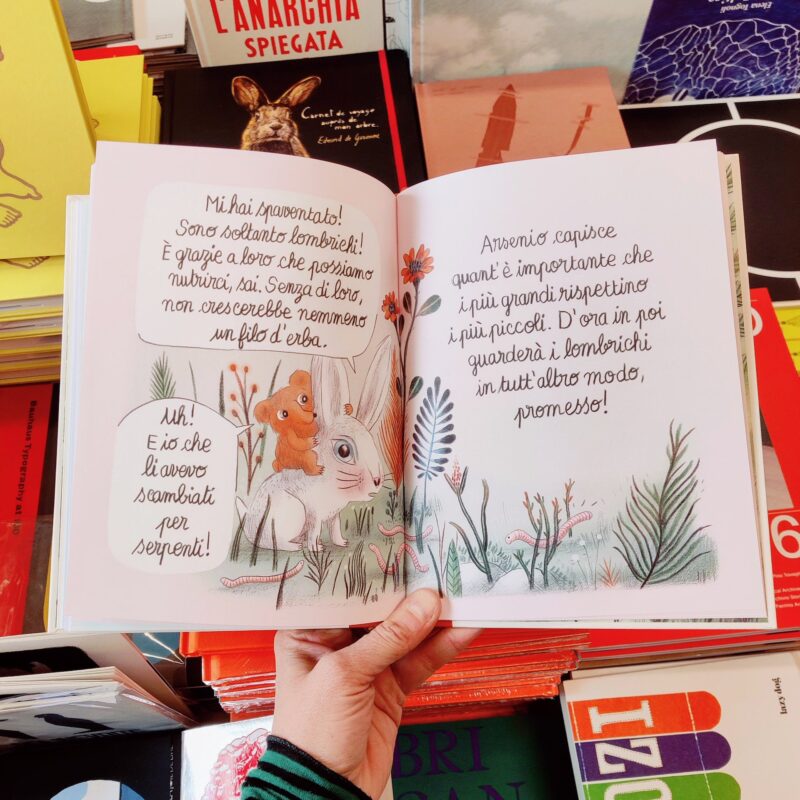 L'ANARCHIA
SPIEGATA
Elena Fognoli
Carnet de voyage
auprès de
mon arbre.
Mi hai spaventato!
Sono soltanto lombrichi!
È grazie a loro che possiamo
nutrirci, sai. Senza di loro,
non crescerebbe nemmeno
un filo d'erba.
Uh!
E io che
li avevo
scambiati
per
serpenti!
Arsenio capisce
quant'è importante che
i più grandi rispettino
i più piccoli. D'ora in poi
guarderà i lombrichi
in tutt'altro modo,
promesso!
Bauhaus Typography at 100
6
IZ
OZ
lazy dog
BRI